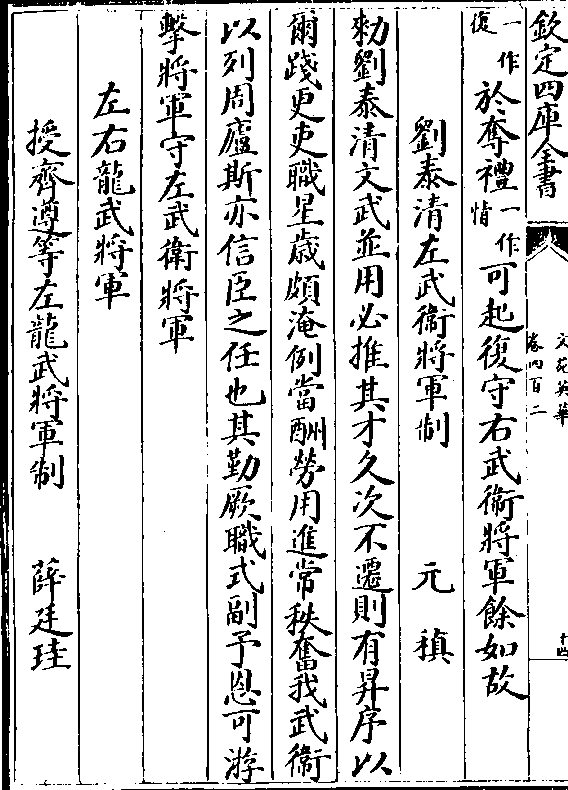 欽定四庫全書
文苑英華
卷四百二
十四
一作復於奪禮一作情可起復守右武衛將軍餘如故
劉泰清左武衛將軍制 元稹
勑劉泰清文武並用必推其才久次不遷則有昇序以
爾踐更吏職星歲頗淹例當酬勞用進常秩奮我武衛
以列周廬斯亦信臣之任也其勤厥職式副予恩可游
擊將軍守左武衛將軍
左右龍武將軍
授齊遵等左龍武將軍制 薛廷珪